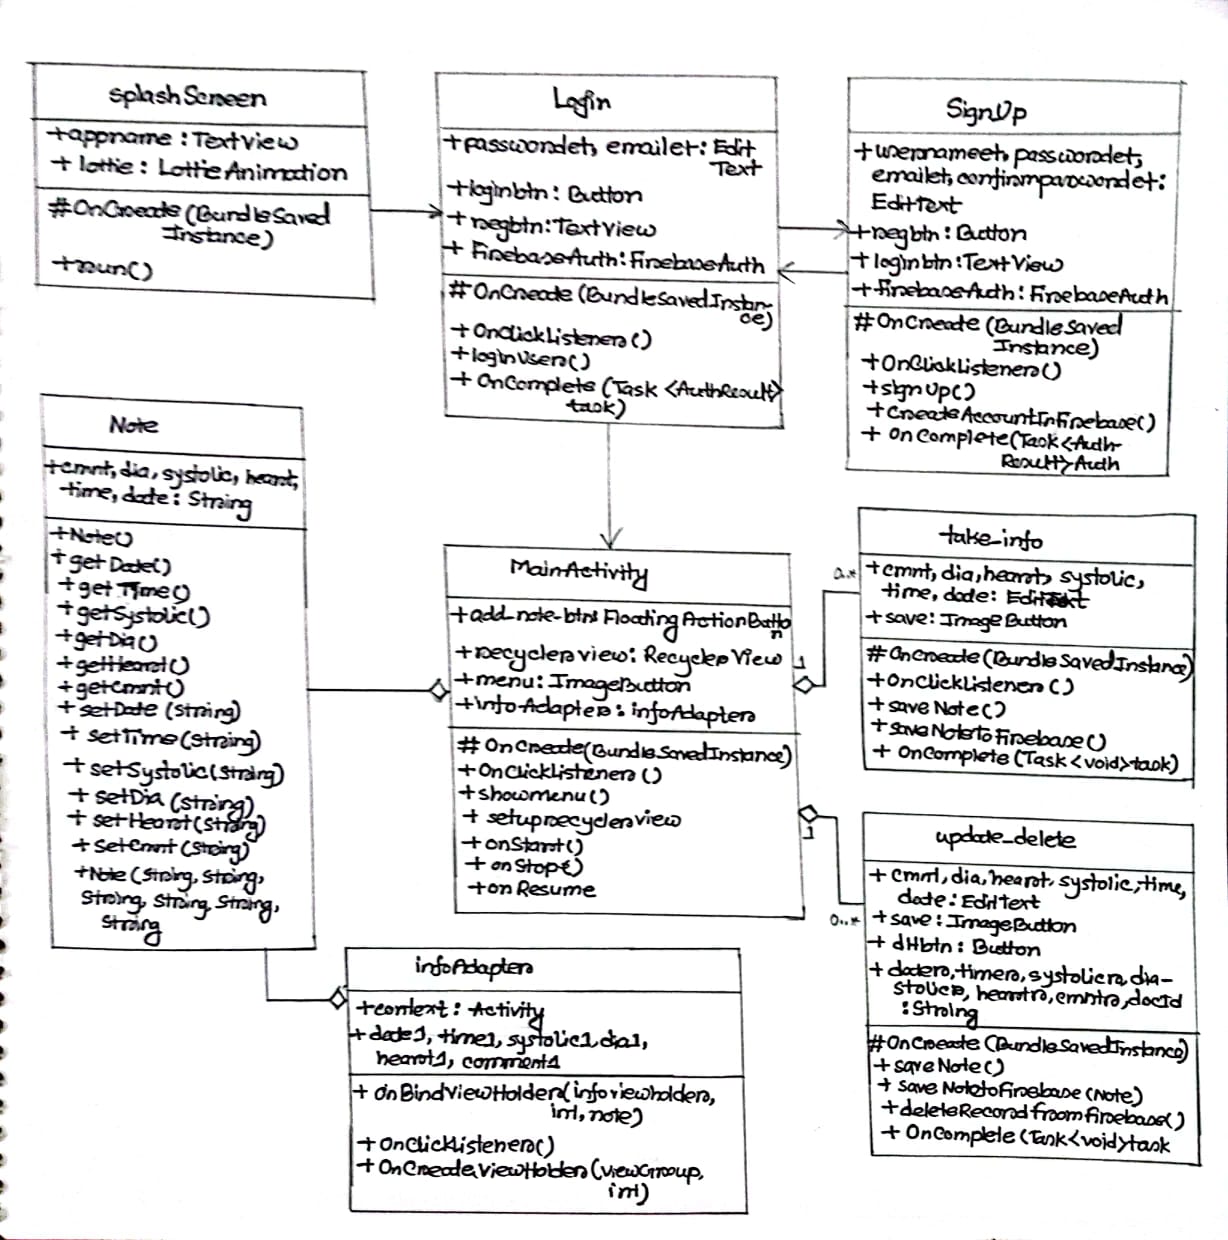 splashScreen
+appname : TextView
+ lottie : LottieAnimation
#OnCreate(BundleSaved
Instance)
+run()
Login
+passwordet, emailet: Edit
Text
+loginbtn : Button
+ regbtn:TextView
+ FirebaseAuth:FirebaseAuth
#OnCreate(BundleSavedInstan-
ce)
+ OnClickListener()
+loginUser()
+ OnComplete(Task <AuthResult>
task)
SignUp
+usernameet, passwordet,
emailet, confirmpasswordet:
EditText
+regbtn: Button
+loginbtn:TextView
+firebaseAuth: FirebaseAuth
#OnCreate(BundleSaved
Instance)
+OnClickListener()
+signUp()
+CreateAccountInFirebase()
+ onComplete(Task<Auth-
Result>Auth
Note
+cmnt, dia, systolic, heart,
time, date: String
+Note()
+getDate()
+getTime()
+getSystolic()
+getDia()
+getHeart()
+getCmnt()
+setDate (String)
+ setTime(String)
+setSystolic(String)
+ setDia (String)
+ setHeart(String)
+ setCmnt (String)
+Note (String, String,
String, String, String,
String
MainActivity
+add_note-btn: FloatingActionButto
n
+recyclerview: RecyclerView
+menu: ImageButton
+infoAdapter: infoAdapter
# OnCreate(BundleSavedInstance)
+OnClickListener()
+showmenu()
+ setuprecyclerview
+onStart()
+onStop()
+on Resume
0..*
1
take_info
+cmnt, dia, heart, systolic,
time, date: EditText
+ save: ImageButton
#OnCreate(BundleSavedInstance)
+OnClickListener()
+save Note()
+saveNotetoFirebase()
+ OnComplete(Task<void>task)
1
0..*
update_delete
+ cmnt, dia, heart, systolic, time,
date : EditText
+save : ImageButton
+ dltbtn : Button
+ dater, timer, systolicr, dia-
stolicr, heartr, cmntr, docId
:String
#OnCreate(BundleSavedInstance)
+saveNote()
+ save NotetoFirebase(Note)
+deleteRecordfromfirebase()
+ OnComplete (Task<void>task
infoAdapter
+context : Activity
+date1, time1, systolic1, dia1,
heart1, comment1
+ onBindViewHolder(infoviewholder,
int, note)
+OnClickListener()
+OnCreateViewHolder(viewGroup,
int)